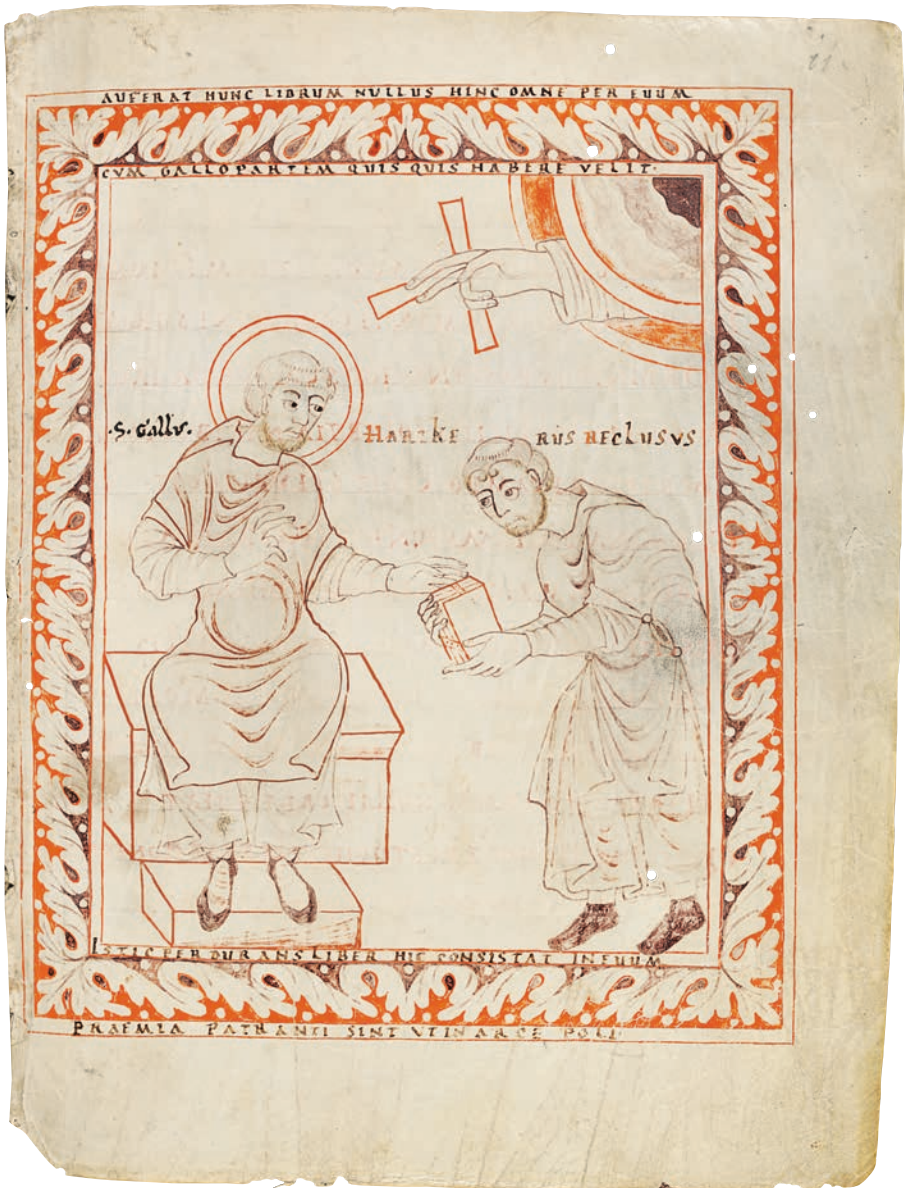 AUFERAT HUNC LIBRUM NULLUS HINC OMNE PER EUUM
CUM GALLO PARTEM QUIS QUIS HABERE VELIT·
·S· Gallus· HARTKERUS RECLUSUS
ISTIC PERDURANS LIBER HIC CONSISTAT IN EUUM
PRAEMIA PATRANTI SINT UT IN ARCE POLI